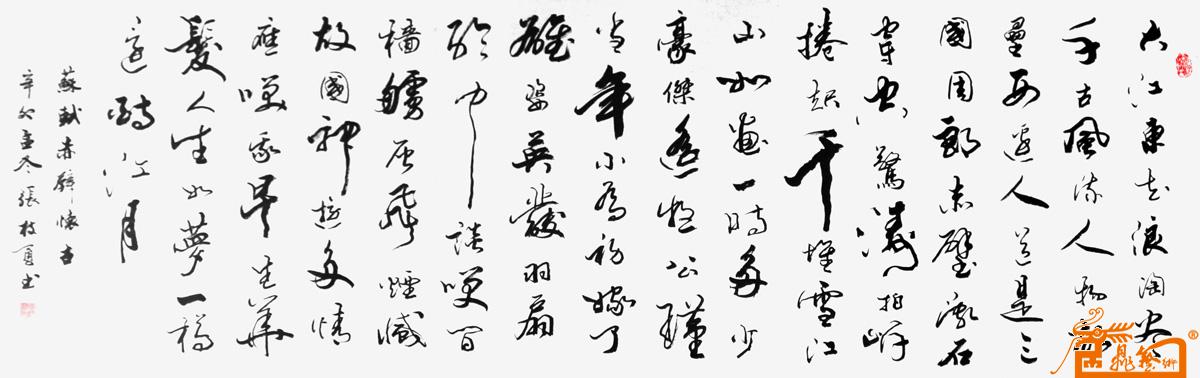 大江東去浪淘盡
千古風流人物故
壘西邊人道是三
國周郎赤壁亂石
穿空驚濤拍岸
捲起千堆雪江
山如畫一時多少
豪傑遙想公瑾
當年小喬初嫁了
雄姿英發羽扇
綸巾談笑間
檣艫灰飛煙滅
故國神遊多情
應笑我早生華
髮人生如夢一樽
還酹江月
蘇軾赤壁懷古
辛卯孟冬張枝书